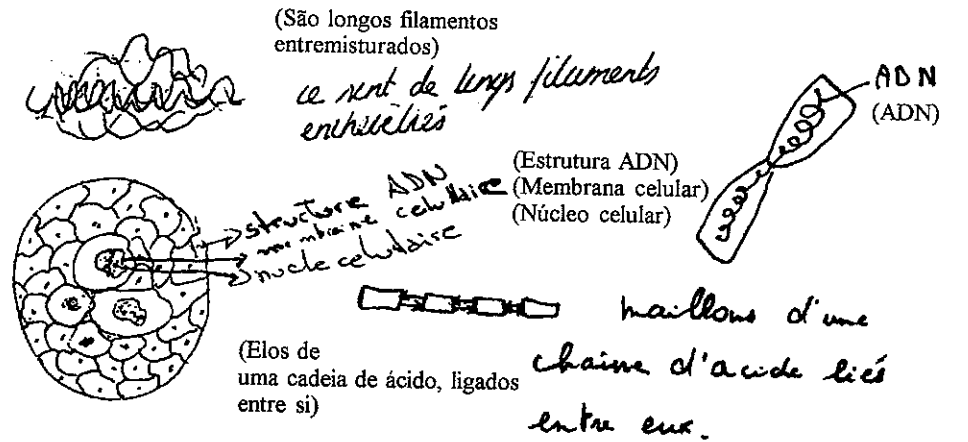 (São longos filamentos
entremisturados)
ce sont de longs filaments
enchevêtrés
ADN
(ADN)
structure ADN
membraine celullaire
nucle celulaire
(Estrutura ADN)
(Membrana celular)
(Núcleo celular)
(Elos de
uma cadeia de ácido, ligados
entre si)
maillons d'une
chaine d'acide liés
entre eux.